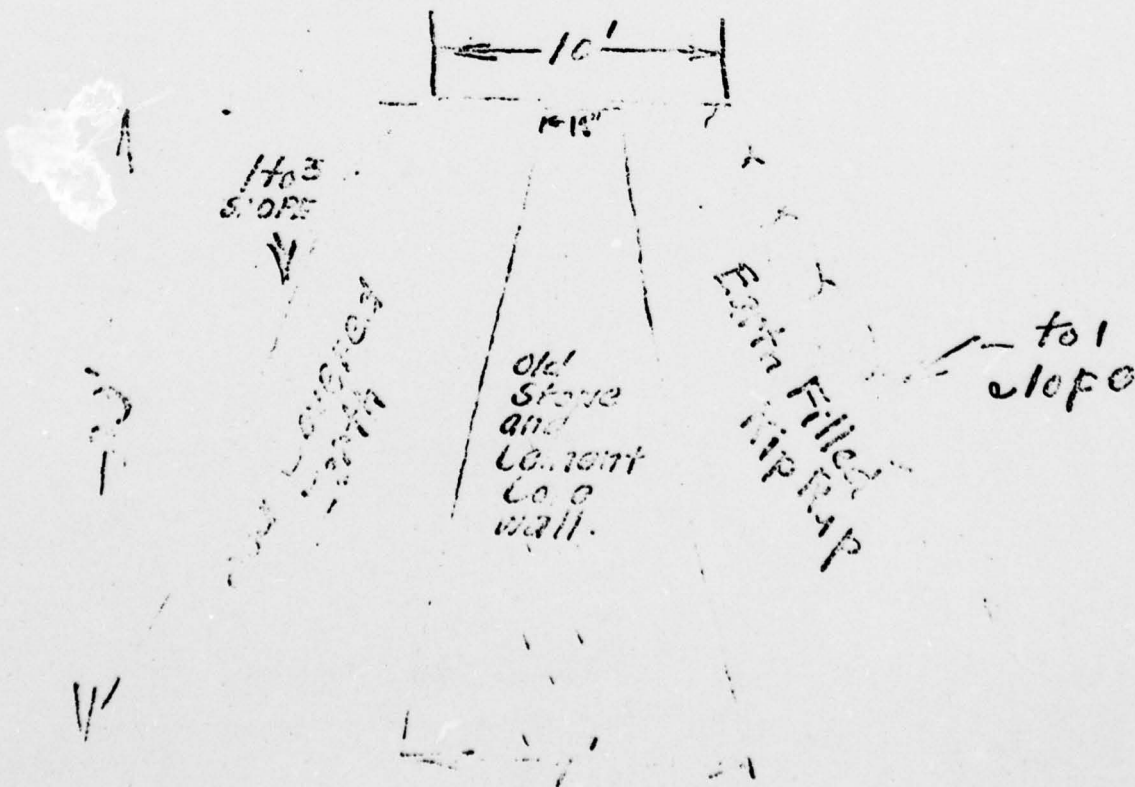 10'
18"
1 to 3
SLOPE
Covered
Earth
Old
Stone
and
Cement
Core
wall.
Earth Filled
Rip Rap
to 1
slope